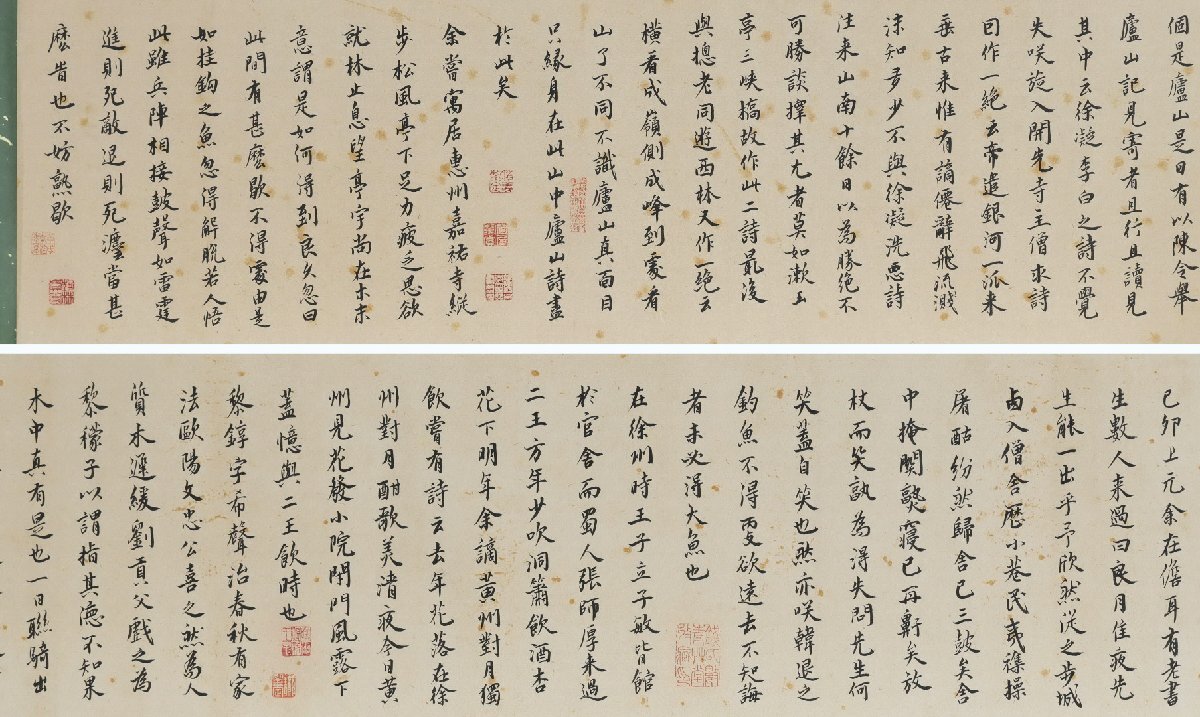 個是廬山是日有以陳令舉
廬山記見寄者且行且讀見
其中云徐凝李白之詩不覺
失咲旋入開先寺主僧求詩
囙作一絕云帝遣銀河一派来
垂古来惟有謫僊辭飛流濺
沫知多少不與徐凝洗惡詩
往来山南十餘日以為勝絕不
可勝談擇其尤者莫如漱玉
亭三峽橋故作此二詩最後
與摠老同遊西林又作一絕云
橫看成嶺側成峰到處看
山了不同不識廬山真面目
只緣身在此山中廬山詩盡
於此矣
余嘗寓居惠州嘉祐寺縱
步松風亭下足力疲乏思欲
就林止息望亭宇尚在木末
意謂是如何得到良久忽曰
此間有甚麽歇不得處由是
如挂鈎之魚忽得解脫若人悟
此雖兵陣相接鼓聲如雷霆
進則死敵退則死灋當甚
麽旹也不妨熟歇
己卯上元余在儋耳有老書
生數人来過曰良月佳夜先
生能一出乎予欣然從之步城
西入僧舍歷小巷民夷襍揉
屠酤紛然歸舍已三鼓矣舍
中掩關熟寢已再鼾矣放
杖而笑孰為得失問先生何
笑蓋自笑也然亦咲韓退之
釣魚不得更欲遠去不知海
者未必得大魚也
在徐州時王子立子敏皆館
於官舍而蜀人張師厚来過
二王方年少吹洞簫飲酒杏
花下明年余謫黃州對月獨
飲嘗有詩云去年花落在徐
州對月酣歌美清夜今日黃
州見花發小院閉門風露下
蓋憶與二王飲時也
黎錞字希聲治春秋有家
法歐陽文忠公喜之然為人
質木遲緩劉貢父戲之為
黎檬子以謂指其德不知果
木中真有是也一日聯騎出